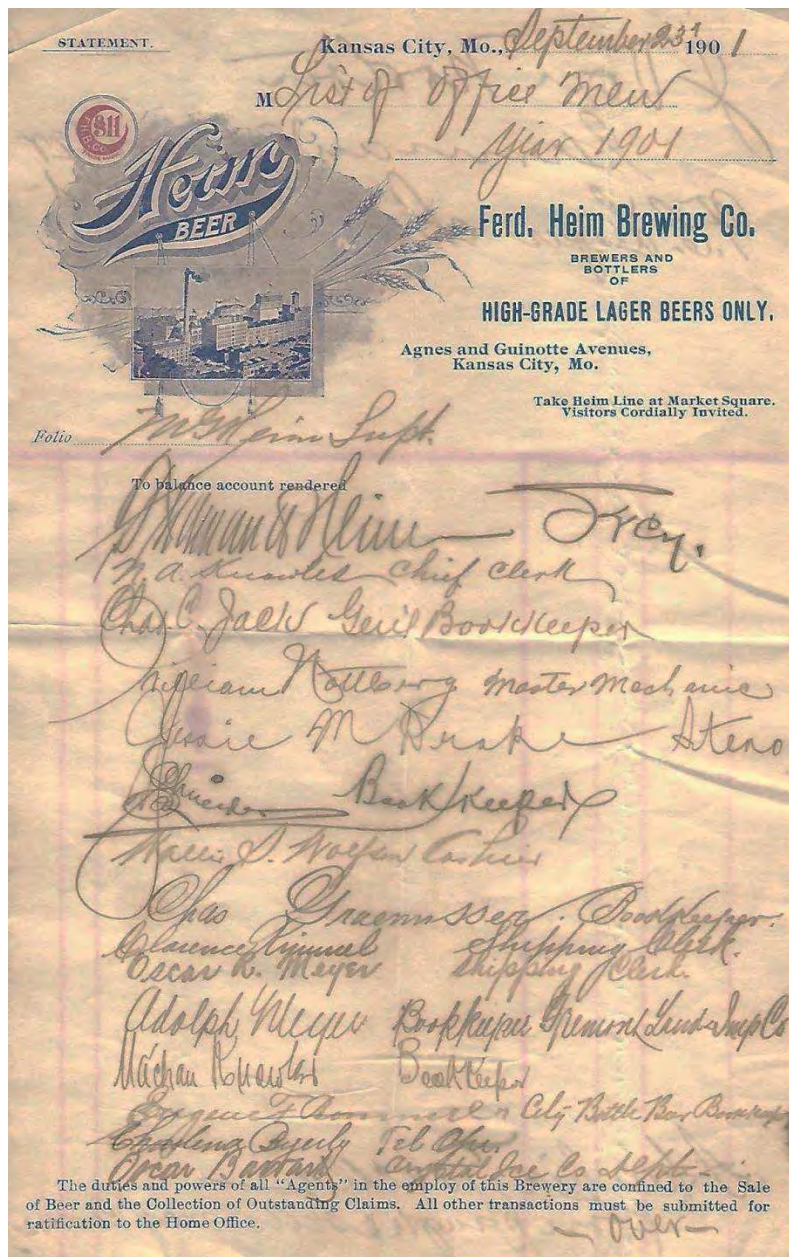 STATEMENT.
Kansas City, Mo., September 23rd 1901
M List of office men
Year 1901
Heim
BEER
Ferd. Heim Brewing Co.
BREWERS AND
BOTTLERS
OF
HIGH-GRADE LAGER BEERS ONLY.
Agnes and Guinotte Avenues,
Kansas City, Mo.
Take Heim Line at Market Square.
Visitors Cordially Invited.
Folio Heim Supt.
To balance account rendered
Heim Trey.
N. A. Knowles Chief Clerk
Chas. C. Jack Gen'l Bookkeeper
William Master Mechanic
M Drake Steno
Bookkeeper
S. Cashier
Chas Bookkeeper.
Clarence Kimmel Shipping Clerk.
Oscar R. Meyer Shipping Clerk.
Adolph Meyer Bookkeeper Land & Imp Co
Knowles Bookkeeper
Eugene F City Bottle Beer Bookkeeper
Byerly Tel Oper
Oscar Crystal Ice Co
The duties and powers of all "Agents" in the employ of this Brewery are confined to the Sale
of Beer and the Collection of Outstanding Claims. All other transactions must be submitted for
ratification to the Home Office.
- over -